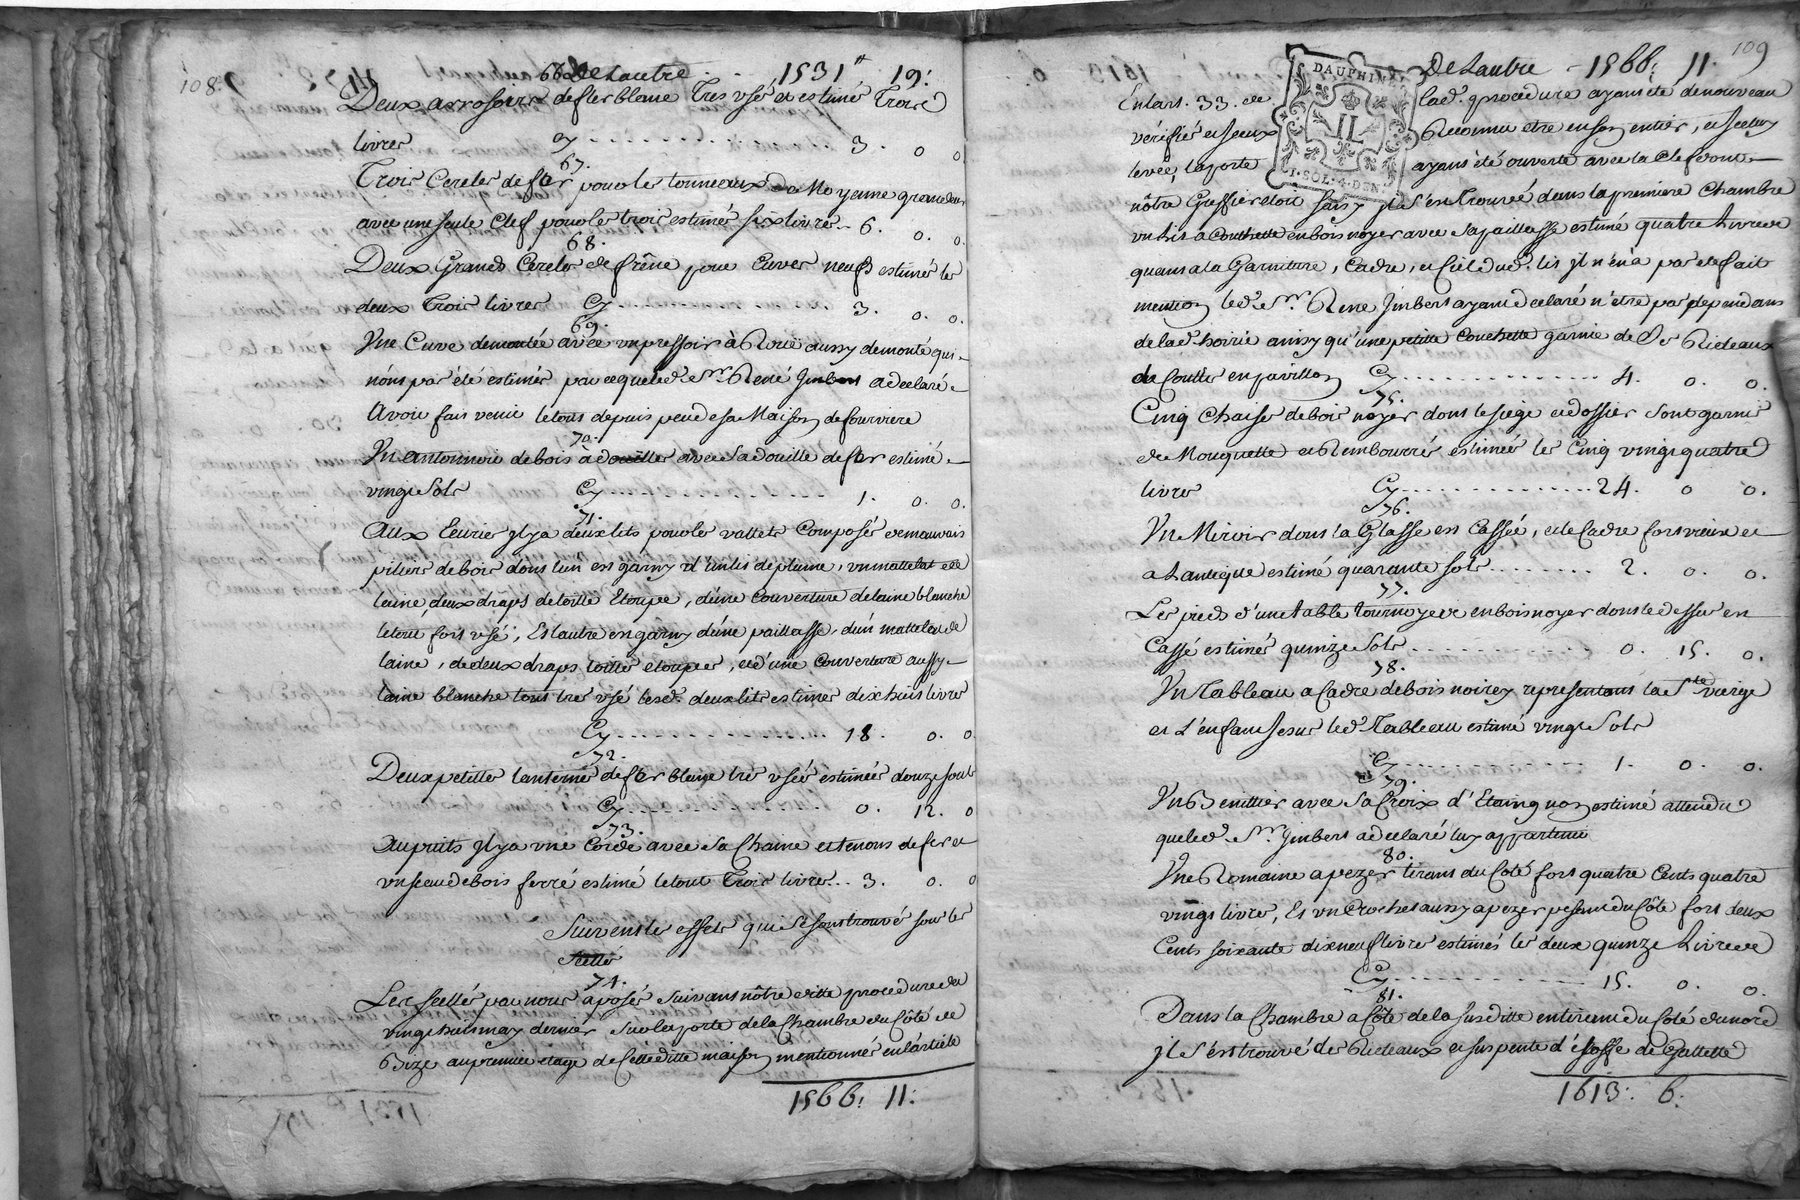 108.
66 de Lautre . . 1531ᵗᵗ 19:
Deux arrosoirs de fer blanc Tres usé et estimé Trois
livres Cy . . . . . . . 3. 0 0
67.
Trois Cercles de fer pour les tonneaux de Moyenne grandeur
avec une seule Clef pour les trois estimés six livres . . 6. 0. 0.
68.
Deux Grands Cercles de frêne pour Cuves neufs estimés les
deux Trois livres Cy . . . . . . . 3. 0. 0.
69.
Une Cuve demontée avec un pressoir à Roüe aussy demonté qui
n'ont pas été estimés parce que led. Sʳ. René Jmbert a declaré
Avoir fait venir le tout depuis peu de sa Maison de fourviere
70.
Un antonnoir de bois à douille avec Sa douille de fer estimé
vingt Sols Cy . . . . . . . 1. 0. 0.
71.
Aux Ecuries Jl y a deux lits pour les vallets Composés de mauvais
piliers de bois dont l'un est garny d'un lit de plume, un mattelat de
laine deux draps de toille Etoupe, d'une Couverture de laine blanche
le tout fort usé, Et l'autre est garny d'une paillasse, d'un mattelat de
laine, de deux draps toille etoupes, et d'une Couverture aussy
laine blanche tous tres usé lesd. deux lits estimés dix huit livres
Cy . . . . . . . 18. 0. 0
72.
Deux petittes lanternes de fer blanc tres usées estimées douze sols
Cy . . . . . . . 0. 12. 0
73.
Au puits Jl y a une Corde avec Sa Chaine et tenons de fer et
un seau de bois ferré estimé le tout Trois livres . . 3. 0. 0
Suivent les effets qui Se sont trouvés sous les
Scellé
74.
Les scellés par nous aposés suivant nôtre ditte procedure du
vingt huit may dernier sur la porte de la Chambre du Côté de
Bize au premier etage de Cette ditte maison mentionnés en l'article
1566: 11:
109
De Lautre - 1566: 11.
DAUPHINÉ
II
1. SOL. 4. DEN.
En l'art. 33. de lad. procedure ayant été de nouveau
vérifiés et iceux Reconnu etre en son entier, et iceluy
levée, la porte ayant été ouverte avec la Clef dont
nôtre Greffier étoit saisy Jl s'est trouvé dans la premiere Chambre
un Lit à Couchette en bois noyer avec sa paillasse estimé quatre Livres
quant a la Garniture, Cadre, et Ciel dud. lit Jl n'en a pas été fait
mention led. Sʳ. Rene Jmbert ayant declaré n'être pas dependant
de lad. hoirie ainsy qu'une petitte Couchette garnie de Ses Rideaux
en pavillon Cy . . . . . . . 4. 0. 0.
75.
Cinq Chaises de bois noyer dont le siege et dossier sont garnis
de Mouquette et Rembourrés estimés les Cinq vingt quatre
livres Cy . . . . . . . 24. 0 0.
76.
Un Miroir dont la Glasse est Cassée, et le Cadre fort vieux et
a L'antique estimé quarante sols . . . . . . . 2. 0. 0.
77.
Les pieds d'une table tournoyer en bois noyer dont le dessus est
Cassé estimés quinze Sols . . . . . . . 0. 15. 0.
78.
Un Tableau a Cadre de bois noircy representant la Sᵗᵉ vierge
et L'enfant Jesus led. Tableau estimé vingt Sols
Cy . . . . . . . 1. 0. 0.
79.
Un Benittier avec Sa Croix d'Etaing non estimé attendu
que led. Sʳ. Jmbert a declaré luy appartenir
80.
Une Romaine a pezer tirant du Coté fort quatre Cents quatre
vingt livres, Et un Crochet aussy a pezer pesant du Côté fort deux
Cents soixante dix neuf livres estimés les deux quinze Livres
Cy . . . . . . . 15. 0. 0.
81.
Dans la Chambre a Côté de la susditte entirant du Coté du nord
Jl s'est trouvé des Rideaux et suspente d'étoffe de Gallette
1613: 6: